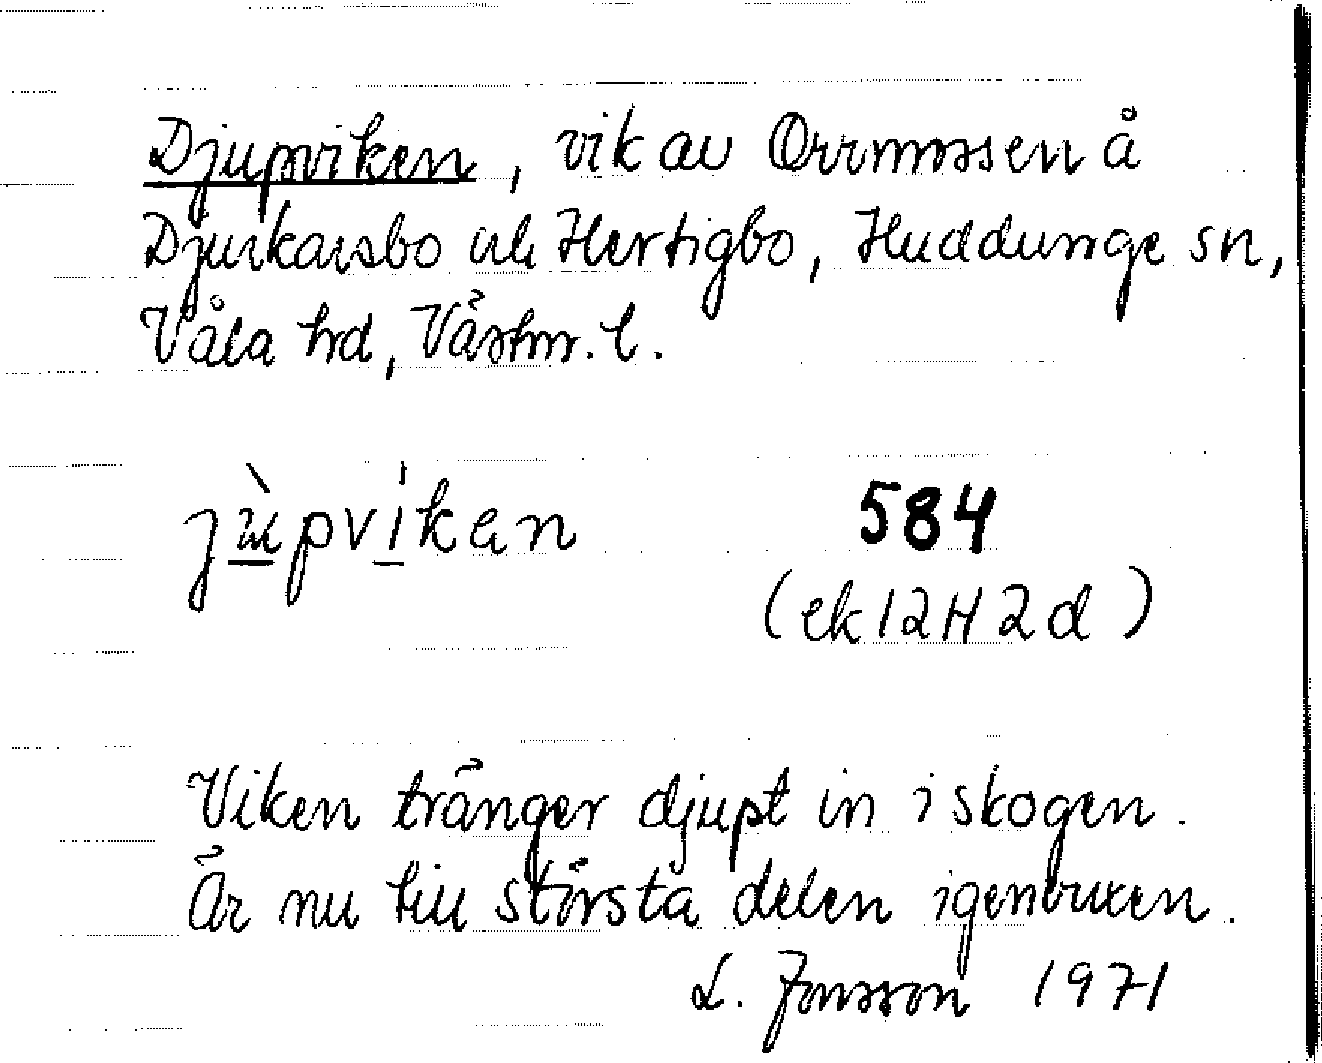 Djupviken, vik av Orrmossen å
Djurkarsbo och Hertigbo, Huddunge sn,
Våla hd, Västm. l.
jùpvíken 584
(ek 12H2d)
Viken tränger djupt in i skogen.
Är nu till största delen igenvuxen.
L. Jonsson 1971